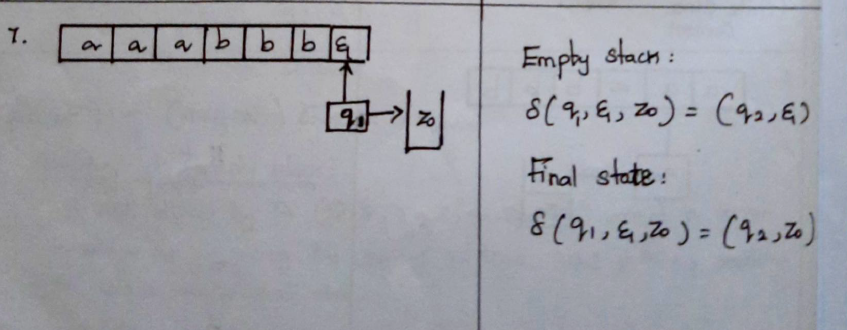 7.
a a a b b b ε
q1 z0
Empty stack:
δ(q1, ε, z0) = (q2, ε)
Final state:
δ(q1, ε, z0) = (q2, z0)